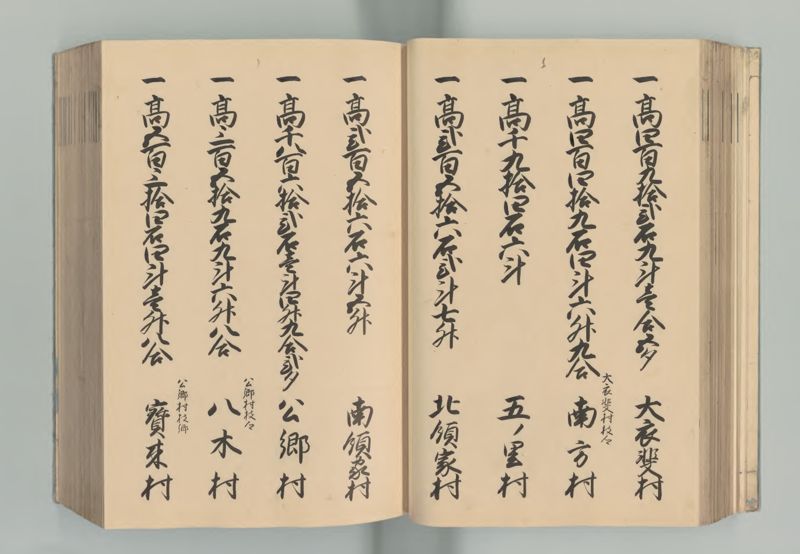 一 高四百九拾弐石九斗壱合五夕 大衣斐村
一 高四百四拾九石四斗六升九合 大衣斐村枝々 南方村
一 高千九拾四石六斗 五ノ里村
一 高弐百五拾六石弐斗七升 北領家村
一 高弐百五拾六石六斗五升 南領家村
一 高千八百六拾弐石壱斗四升九合弐夕 公郷村
一 高三百五拾九石九斗六升八合 公郷村枝々 八木村
一 高五百三拾四石四斗壱升八合 公郷村枝郷 寶来村